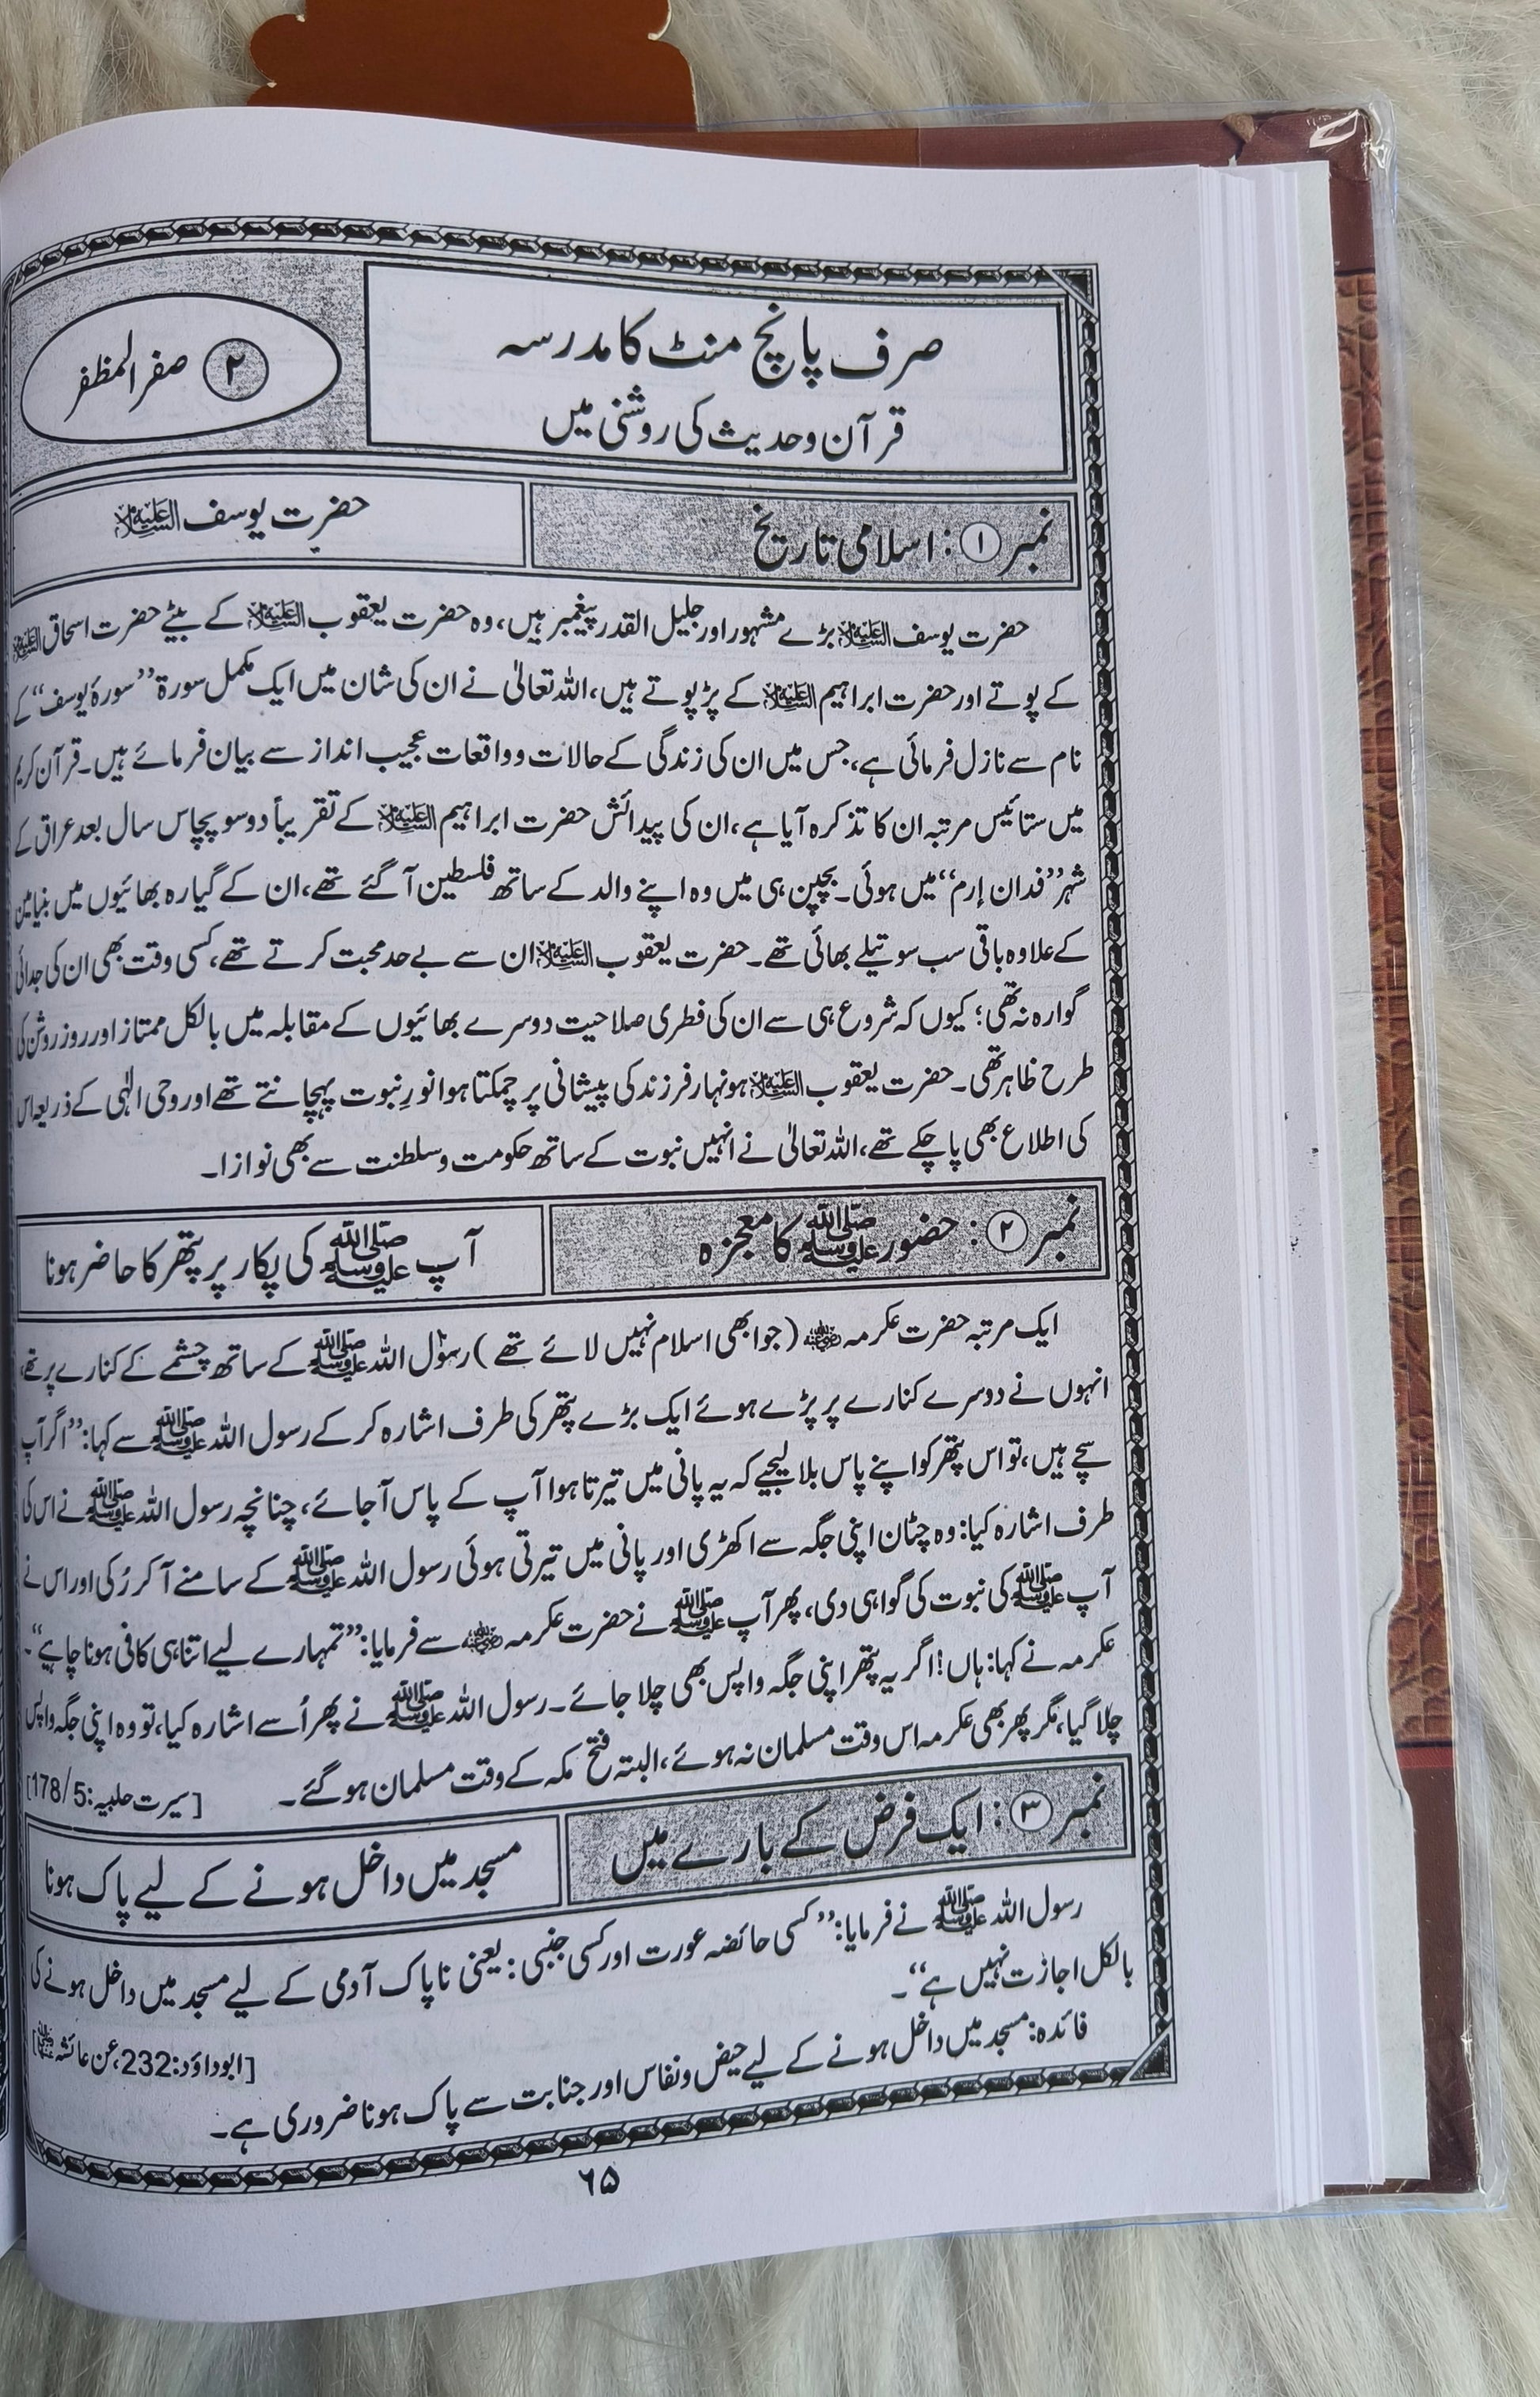 صرف پانچ منٹ کا مدرسہ
قرآن و حدیث کی روشنی میں
۲ صفر المظفر
نمبر ۱: اسلامی تاریخ
حضرت یوسف علیہ السلام
حضرت یوسف علیہ السلام بڑے مشہور اور جلیل القدر پیغمبر ہیں، وہ حضرت یعقوب علیہ السلام کے بیٹے حضرت اسحاق علیہ السلام
کے پوتے اور حضرت ابراہیم علیہ السلام کے پڑپوتے ہیں، اللہ تعالیٰ نے ان کی شان میں ایک مکمل سورۃ ’’سورۂ یوسف‘‘ کے
نام سے نازل فرمائی ہے، جس میں ان کی زندگی کے حالات و واقعات عجیب انداز سے بیان فرمائے ہیں۔ قرآن کریم
میں ستائیس مرتبہ ان کا تذکرہ آیا ہے، ان کی پیدائش حضرت ابراہیم علیہ السلام کے تقریباً دو سو پچاس سال بعد عراق کے
شہر ’’فدان إرم‘‘ میں ہوئی۔ بچپن ہی میں وہ اپنے والد کے ساتھ فلسطین آ گئے تھے، ان کے گیارہ بھائیوں میں بنیامین
کے علاوہ باقی سب سوتیلے بھائی تھے۔ حضرت یعقوب علیہ السلام ان سے بے حد محبت کرتے تھے، کسی وقت بھی ان کی جدائی
گوارہ نہ تھی؛ کیوں کہ شروع ہی سے ان کی فطری صلاحیت دوسرے بھائیوں کے مقابلہ میں بالکل ممتاز اور روز روشن کی
طرح ظاہر تھی۔ حضرت یعقوب علیہ السلام ہونہار فرزند کی پیشانی پر چمکتا ہوا نورِ نبوت پہچانتے تھے اور وحی الٰہی کے ذریعہ اس
کی اطلاع بھی پا چکے تھے، اللہ تعالیٰ نے انہیں نبوت کے ساتھ حکومت و سلطنت سے بھی نوازا۔
نمبر ۲: حضور صلی اللہ علیہ وسلم کا معجزہ
آپ صلی اللہ علیہ وسلم کی پکار پر پتھر کا حاضر ہونا
ایک مرتبہ حضرت عکرمہ رضی اللہ عنہ (جو ابھی اسلام نہیں لائے تھے) رسول اللہ صلی اللہ علیہ وسلم کے ساتھ چشمے کے کنارے پر تھے،
انہوں نے دوسرے کنارے پر پڑے ہوئے ایک بڑے پتھر کی طرف اشارہ کر کے رسول اللہ صلی اللہ علیہ وسلم سے کہا: ’’اگر آپ
سچے ہیں، تو اس پتھر کو اپنے پاس بلا لیجیے کہ یہ پانی میں تیرتا ہوا آپ کے پاس آ جائے، چنانچہ رسول اللہ صلی اللہ علیہ وسلم نے اس کی
طرف اشارہ کیا: وہ چٹان اپنی جگہ سے اکھڑی اور پانی میں تیرتی ہوئی رسول اللہ صلی اللہ علیہ وسلم کے سامنے آ کر رُکی اور اس نے
آپ صلی اللہ علیہ وسلم کی نبوت کی گواہی دی، پھر آپ صلی اللہ علیہ وسلم نے حضرت عکرمہ رضی اللہ عنہ سے فرمایا: ’’تمہارے لیے اتنا ہی کافی ہونا چاہیے‘‘۔
عکرمہ نے کہا: ہاں! اگر یہ پتھر اپنی جگہ واپس بھی چلا جائے۔ رسول اللہ صلی اللہ علیہ وسلم نے پھر اُسے اشارہ کیا، تو وہ اپنی جگہ واپس
چلا گیا، مگر پھر بھی عکرمہ اس وقت مسلمان نہ ہوئے، البتہ فتح مکہ کے وقت مسلمان ہو گئے۔ [سیرت حلبیہ: 178/5]
نمبر ۳: ایک فرض کے بارے میں
مسجد میں داخل ہونے کے لیے پاک ہونا
رسول اللہ صلی اللہ علیہ وسلم نے فرمایا: ’’کسی حائضہ عورت اور کسی جنبی: یعنی ناپاک آدمی کے لیے مسجد میں داخل ہونے کی
بالکل اجازت نہیں ہے‘‘۔
[ابوداؤد: 232، عن عائشہ رضی اللہ عنہا]
فائدہ: مسجد میں داخل ہونے کے لیے حیض و نفاس اور جنابت سے پاک ہونا ضروری ہے۔
۶۵